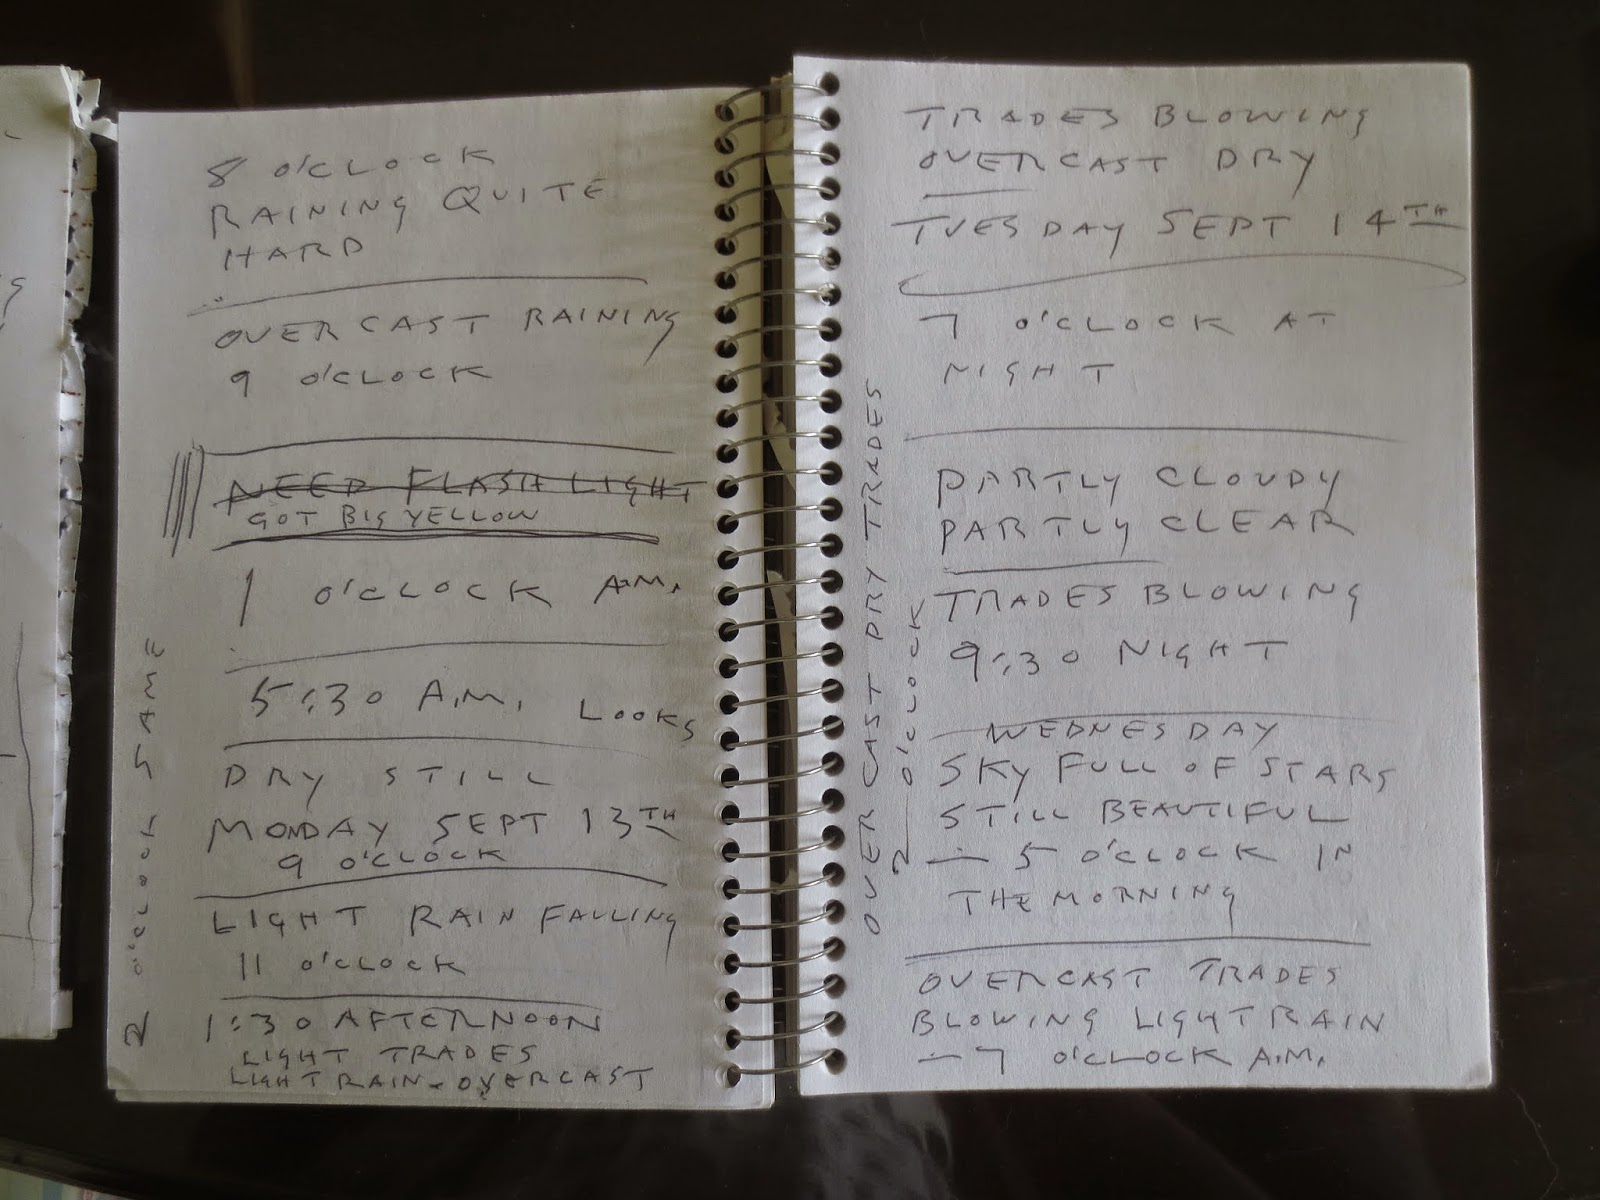 8 O'CLOCK
RAINING QUITE
HARD
OVERCAST RAINING
9 O'CLOCK
NEED FLASHLIGHT
GOT BIG YELLOW
1 O'CLOCK A.M.
5:30 A.M. LOOKS
DRY STILL
MONDAY SEPT 13TH
9 O'CLOCK
LIGHT RAIN FALLING
11 O'CLOCK
1:30 AFTERNOON
LIGHT TRADES
LIGHT RAIN-OVERCAST
2 O'CLOCK SAME
TRADES BLOWING
OVERCAST DRY
TUESDAY SEPT 14TH
7 O'CLOCK AT
NIGHT
PARTLY CLOUDY
PARTLY CLEAR
TRADES BLOWING
9:30 NIGHT
WEDNESDAY
SKY FULL OF STARS
STILL BEAUTIFUL
— 5 O'CLOCK IN
THE MORNING
OVERCAST TRADES
BLOWING LIGHT RAIN
— 7 O'CLOCK A.M.
OVERCAST DRY TRADES
2 — O'CLOCK